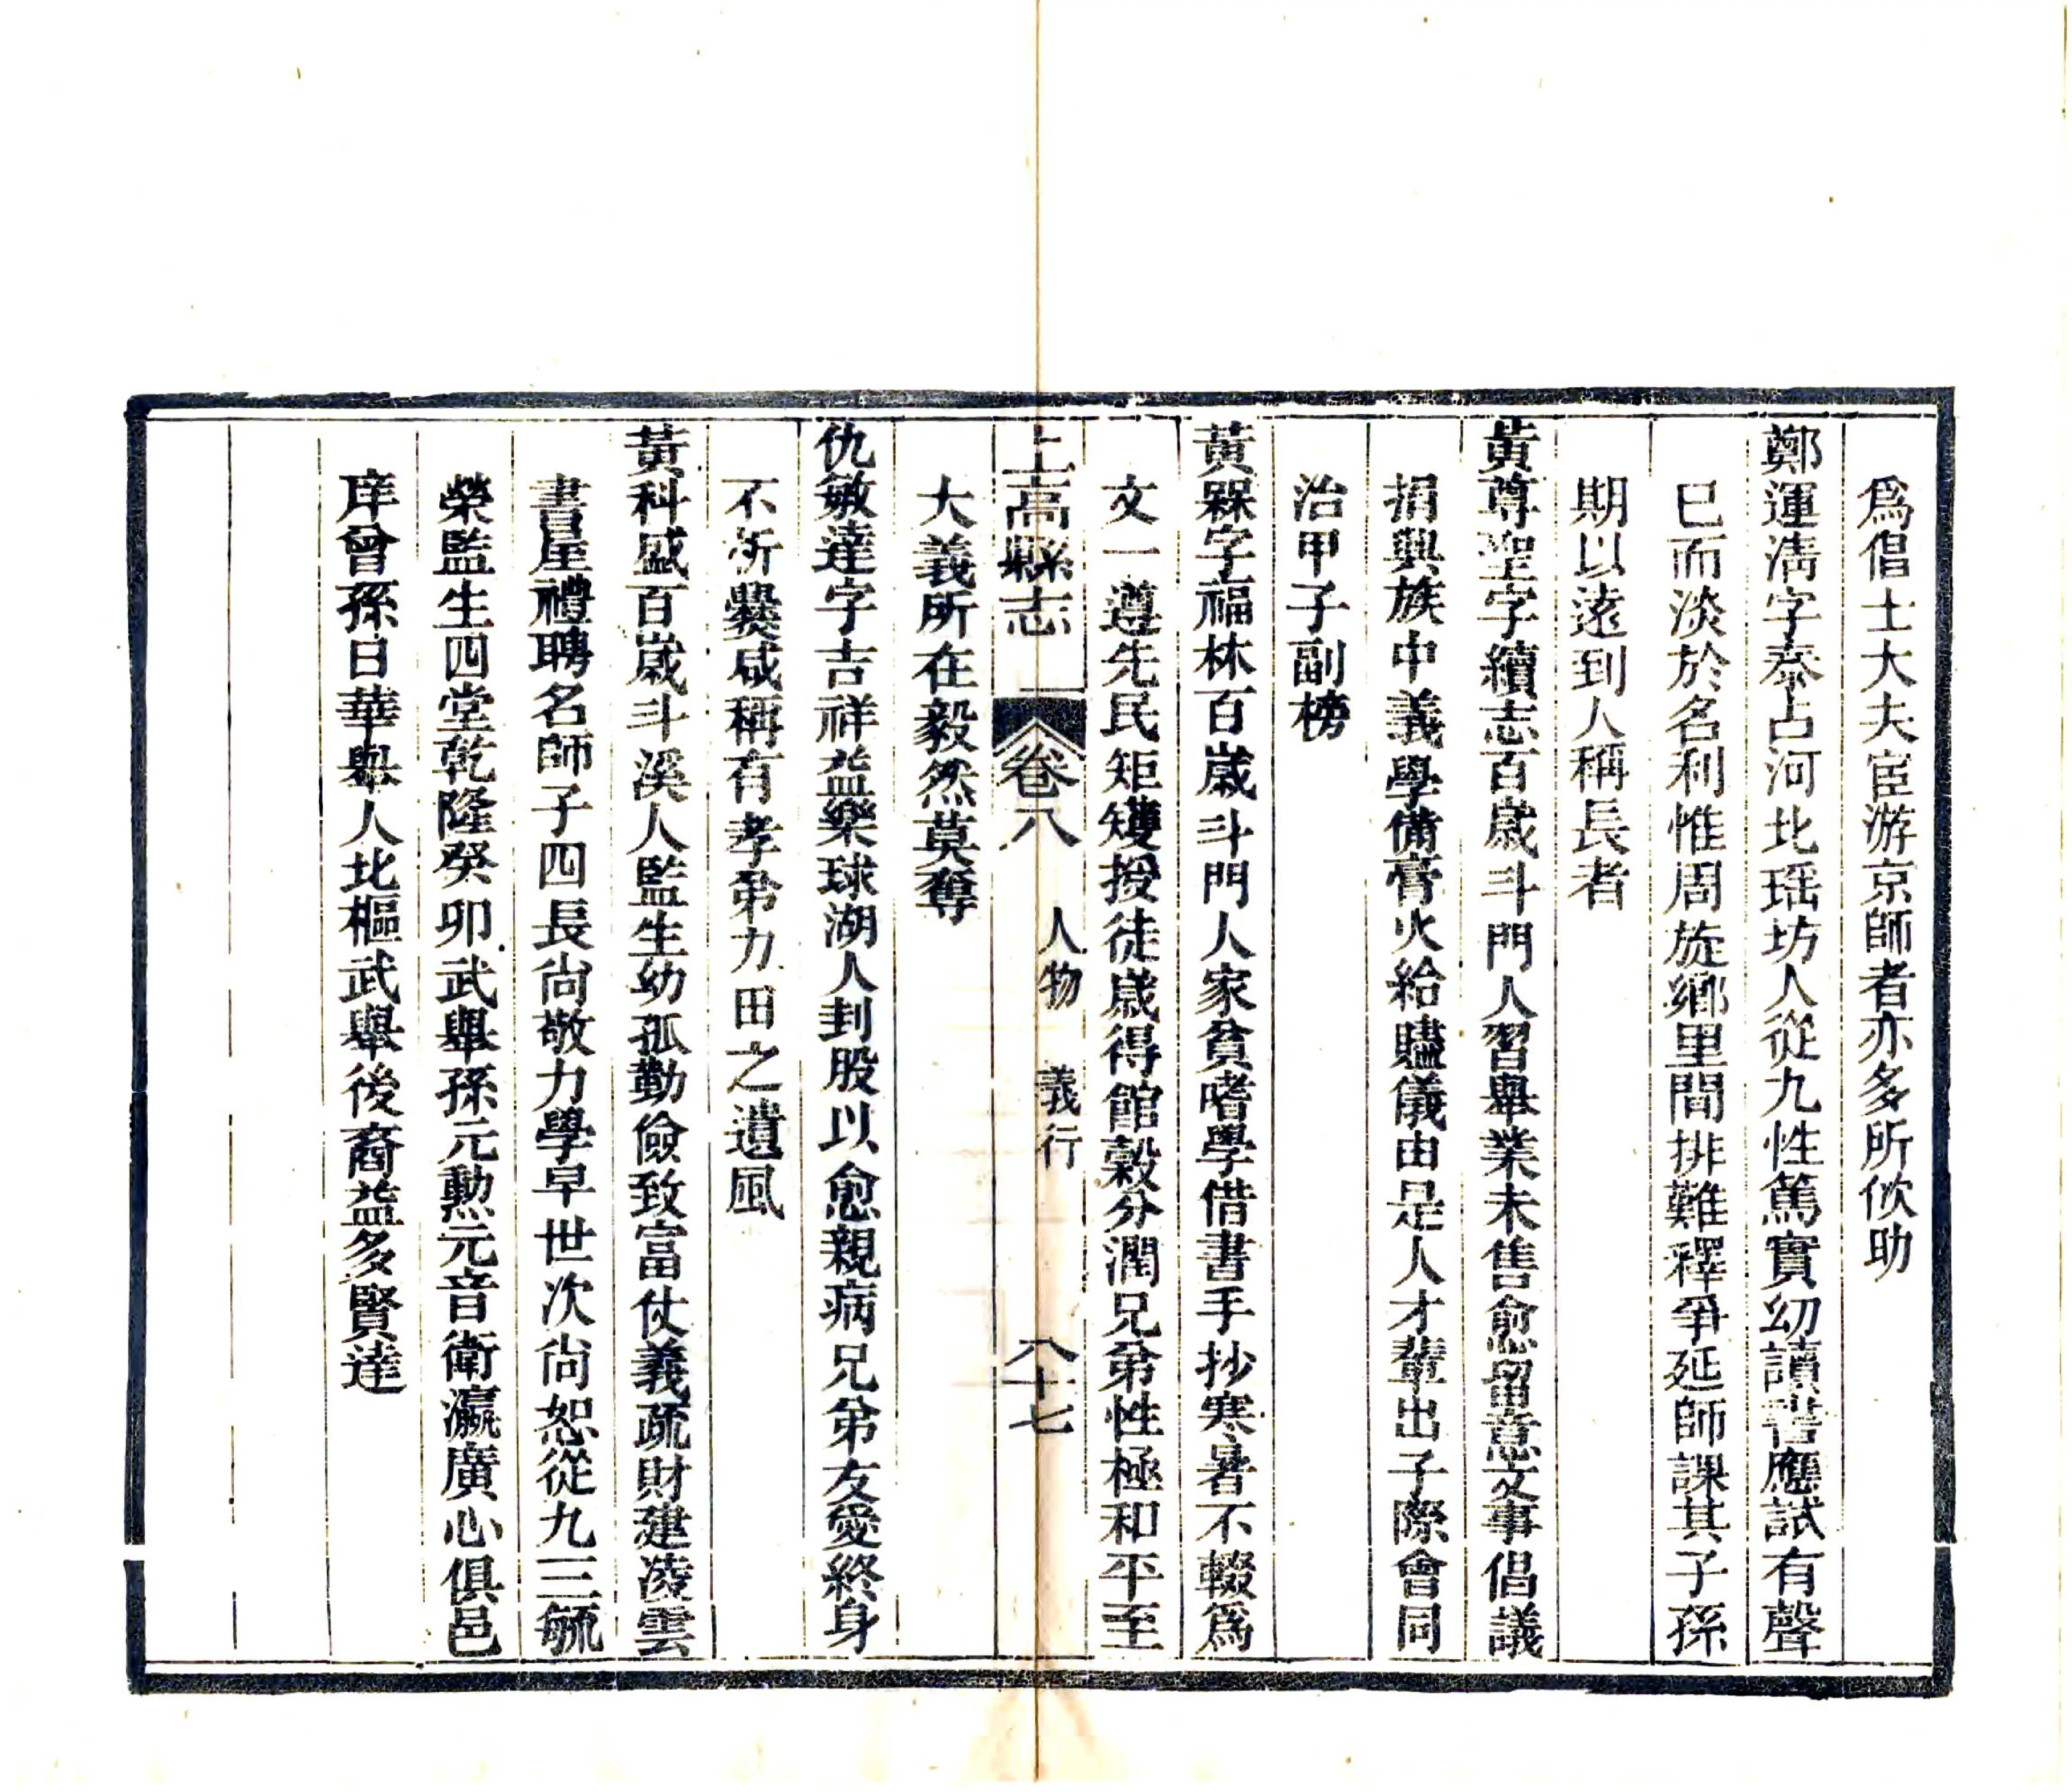 爲倡士大夫宦游京師者亦多所佽助
鄭運淸字泰占河北瑶坊人從九性篤實幼讀書應試有聲
巳而淡於名利惟周旋鄉里間排難釋爭延師課其子孫
期以遠到人稱長者
黃尊聖字續志百歲斗門人習舉業未售愈留意文事倡議
捐興族中義學備膏火給贐儀由是人才輩出子際會同
治甲子副榜
黃槑字福林百歲斗門人家貧嗜學借書手抄寒暑不輟爲
文一遵先民矩矱授徒歲得館穀分潤兄弟性極和平至
上高縣志 卷八 人物 義行 八十七
大義所在毅然莫奪
仇敏達字吉祥益樂球湖人刲股以愈親病兄弟友愛終身
不析爨咸稱有孝弟力田之遺風
黃科盛百歲斗溪人監生幼孤勤儉致富仗義疏財建淩雲
書屋禮聘名師子四長尙敬力學早世次尙恕從九三毓
榮監生四堂乾隆癸卯武舉孫元勲元音衛瀛廣心俱邑
庠曾孫日華舉人北樞武舉後裔益多賢達